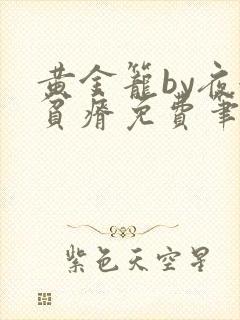 黄金籠by夜
貧瘠免費筆
紫色天空星